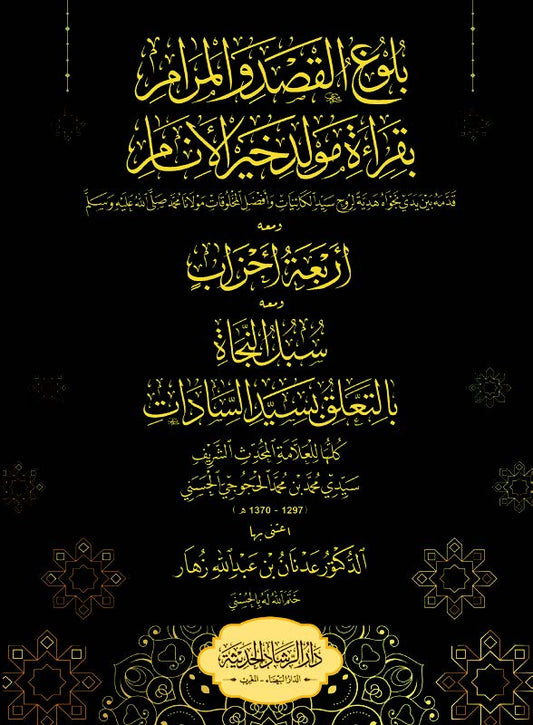 بُلُوغُ القَصْدِ وَالمَرَامِ
بِقِرَاءَةِ مَوْلِدِ خَيْرِ الأَنَامِ
قَدَّمَهُ بَيْنَ يَدَيْ نَجْوَاهُ هَدِيَّةً لِرُوحِ سَيِّدِ الكَائِنَاتِ وَأَفْضَلِ المَخْلُوقَاتِ مَوْلَانَا مُحَمَّد صَلَّى اللهُ عَلَيْهِ وَسَلَّم
ومعه
أَرْبَعَةُ أَحْزَابٍ
ومعه
سُبُلُ النَّجَاةِ
بِالتَّعَلُّقِ بِسَيِّدِ السَّادَاتِ
كُلُّهَا لِلْعَلَّامَةِ المُحَدِّثِ الشَّرِيفِ
سَيِّدِي مُحَمَّد بْنِ مُحَمَّد الحَجُوجِيّ الحَسَنِي
(1297 - 1370 هـ)
اعتنى بها
الدُّكْتُور عَدْنَانُ بْنُ عَبْدِ اللهِ زُهَار
خَتَمَ اللهُ لَهُ بِالحُسْنَى
دَارُ الرَّشَادِ الحَدِيثَةِ
الدار البيضاء - المغرب